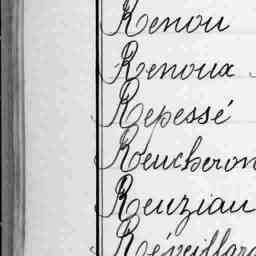 Renou
Renoux
Repessé
Reucheron
Reuziau
Réveillard